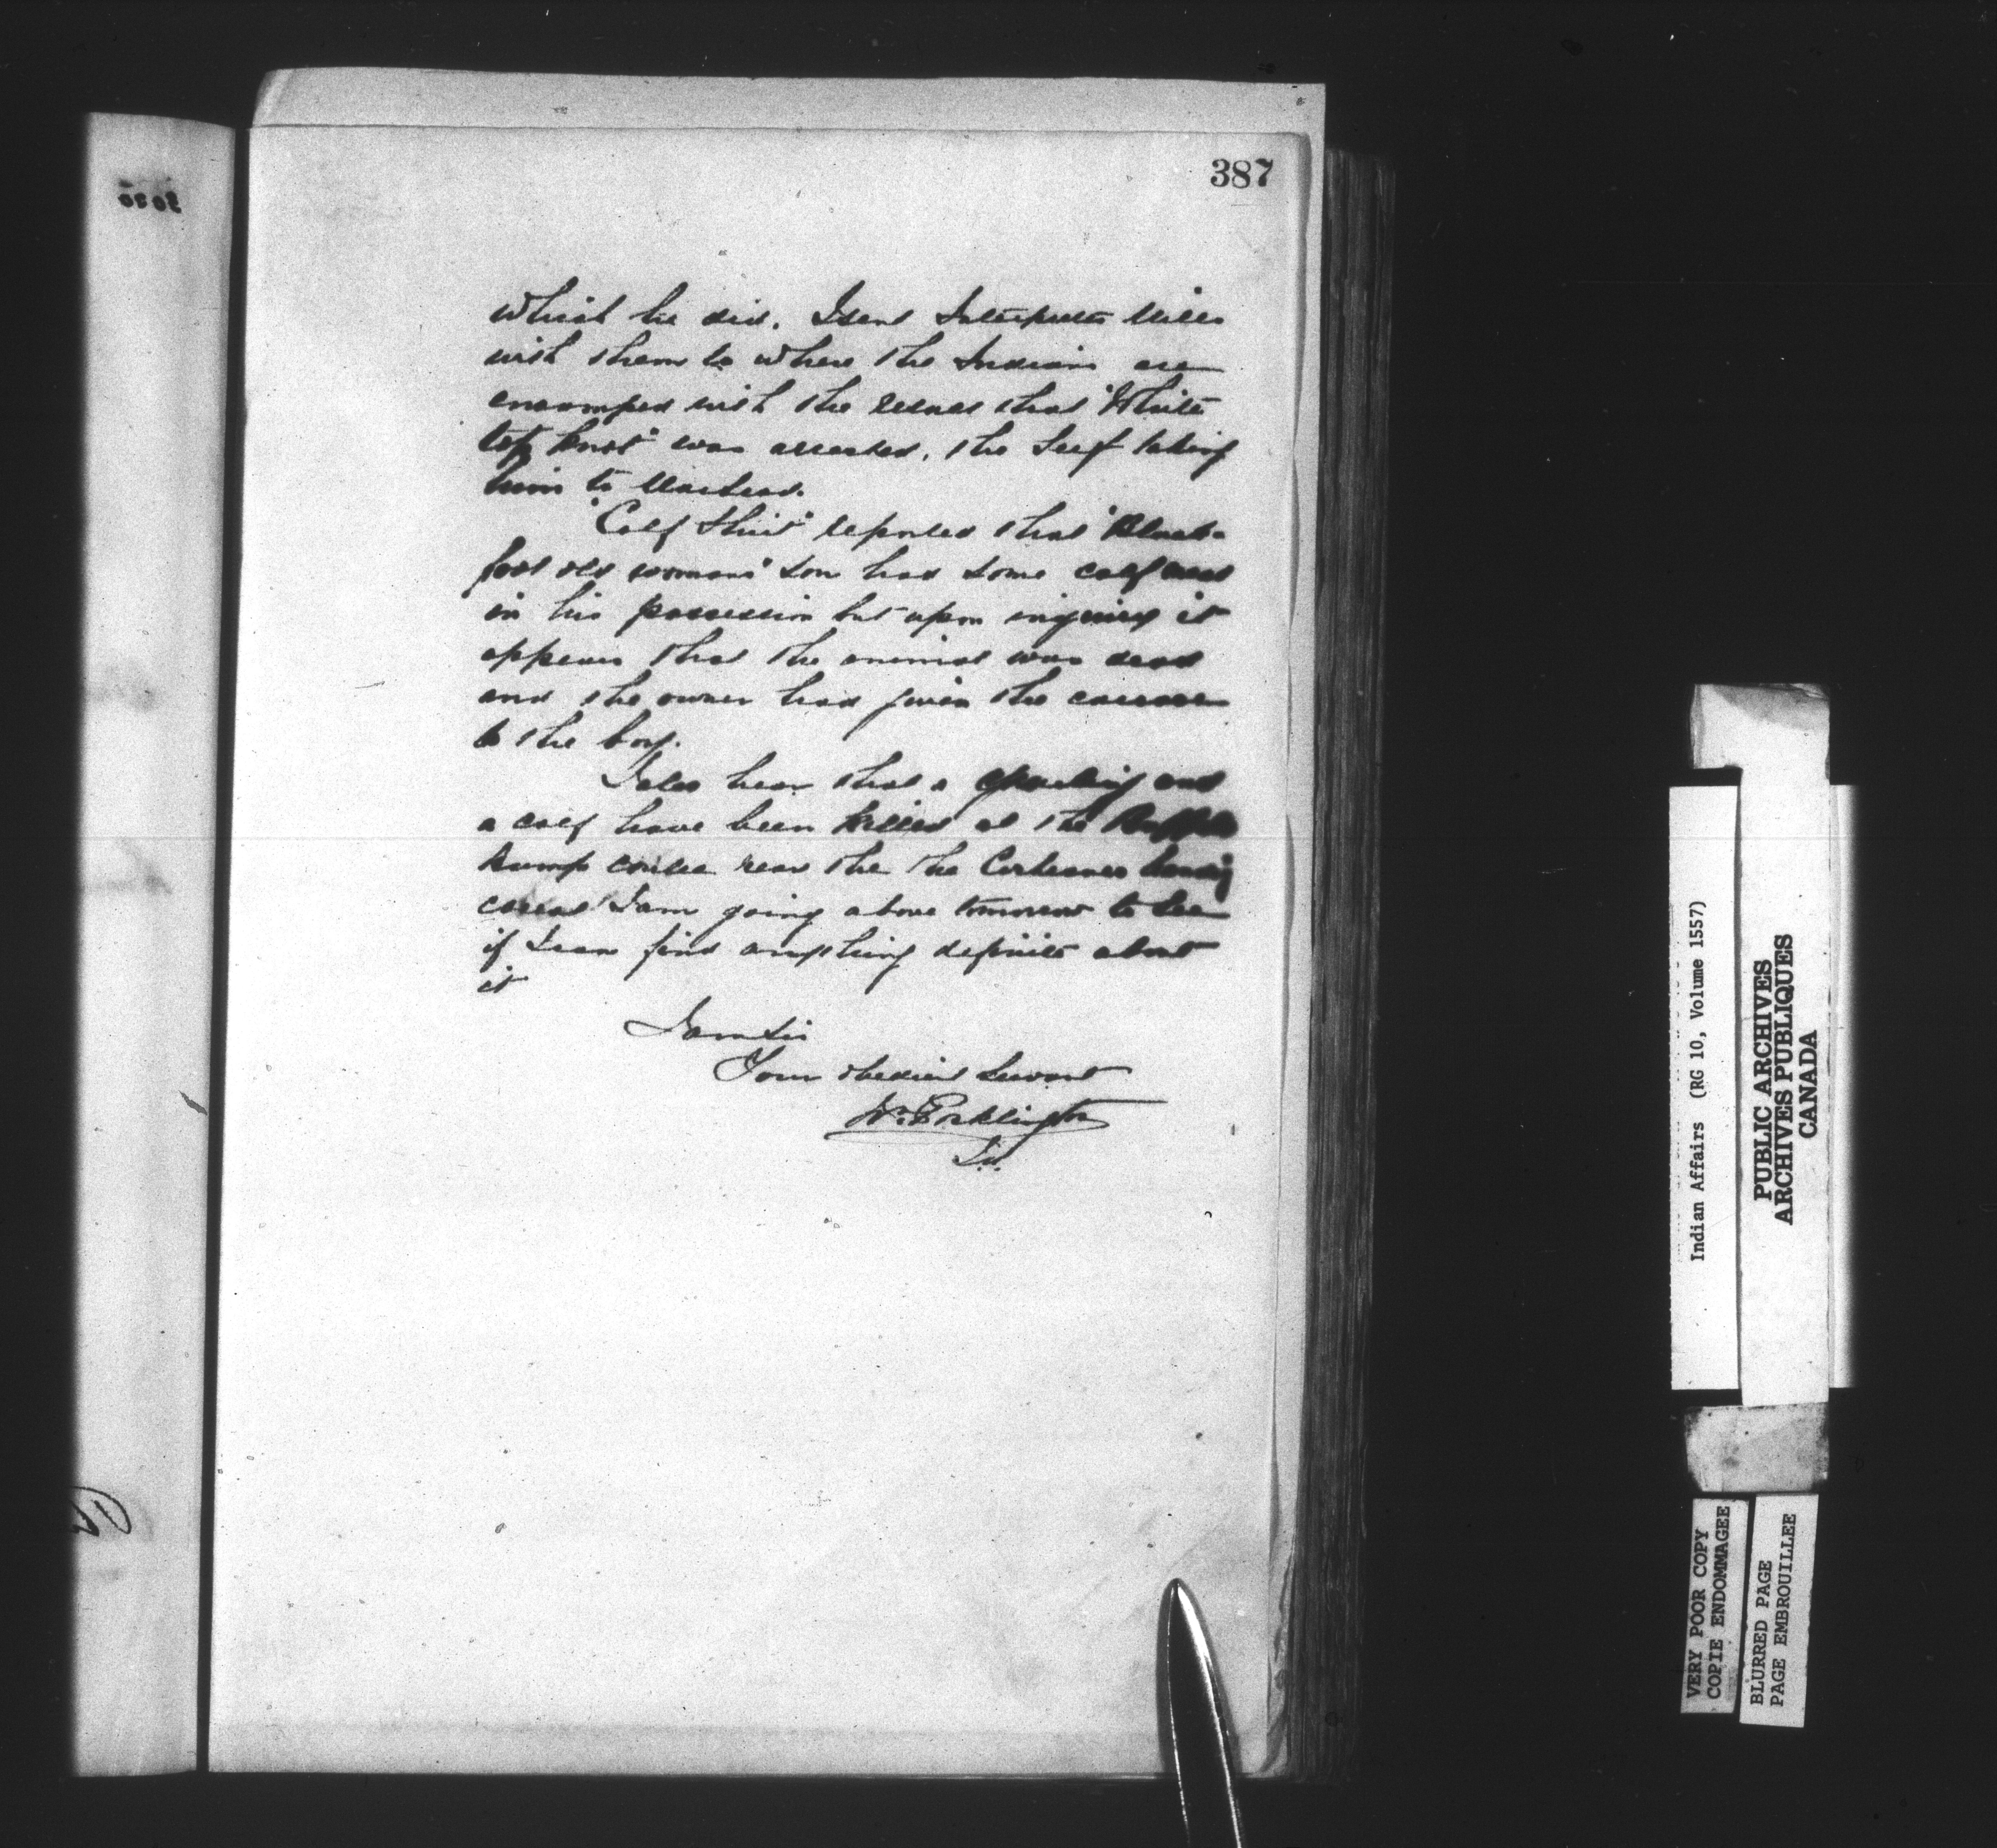 387
which he did. I sent Interpreter Mills
with them to where the Indians are
encamped with the news that "White
top knot" was arrested. The Serjt taking
him to Macleod.
"Calf Shirt" reported that "Black-
foot old womans" son had some calf meat
in his possession but upon inquiry it
appears that the animal was dead
and the owner had given the carcase
to the boy.
I also hear that a yearling and
a calf have been killed at the Buffalo
Jump coulee near the the
corral I am going above tomorrow to see
if I can find anything definite about
it
I am Sir
Your obedient Servant
Wm Pocklington
Indian Affairs (RG 10, Volume 1557)
PUBLIC ARCHIVES
ARCHIVES PUBLIQUES
CANADA
VERY POOR COPY
COPIE ENDOMMAGEE
BLURRED PAGE
PAGE EMBROUILLEE